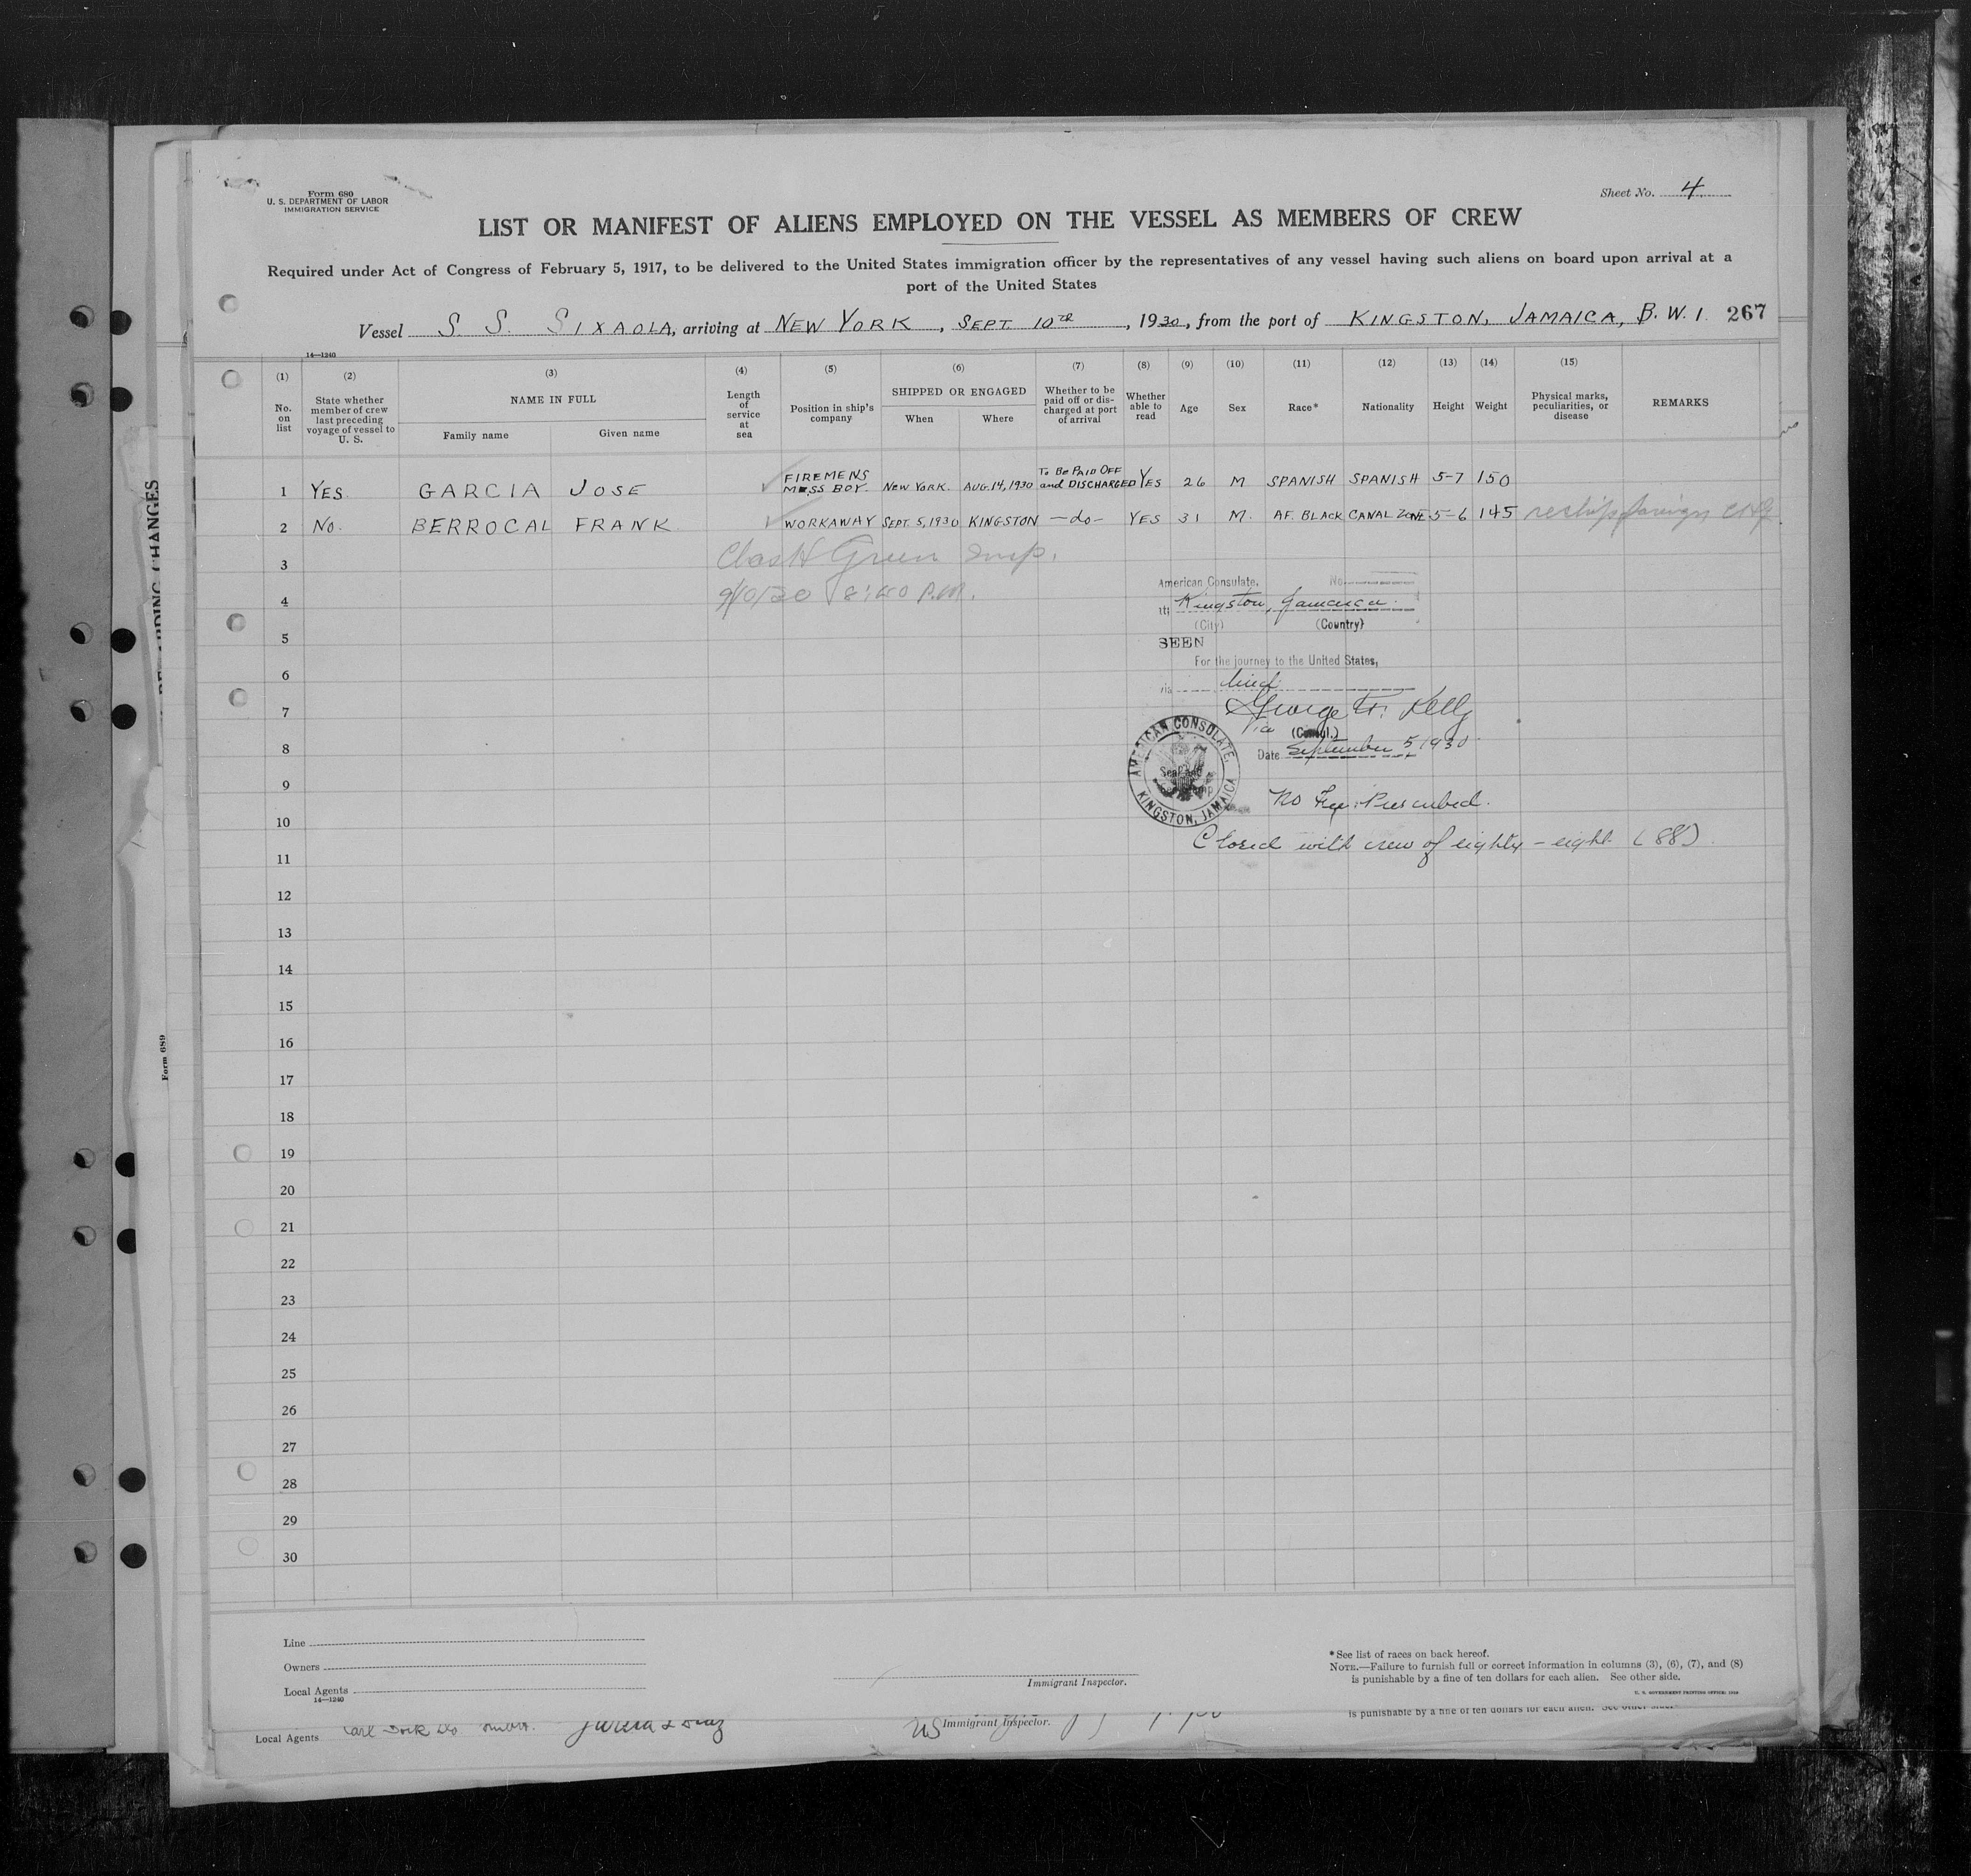 Form 680
U. S. DEPARTMENT OF LABOR
IMMIGRATION SERVICE
Sheet No. 4
LIST OR MANIFEST OF ALIENS EMPLOYED ON THE VESSEL AS MEMBERS OF CREW
Required under Act of Congress of February 5, 1917, to be delivered to the United States immigration officer by the representatives of any vessel having such aliens on board upon arrival at a
port of the United States
Vessel S. S. SIXAOLA, arriving at NEW YORK, SEPT 10TH, 1930, from the port of KINGSTON, JAMAICA, B. W. I. 267
14—1240
(1) (2) (3) (4) (5) (6) (7) (8) (9) (10) (11) (12) (13) (14) (15)
No. on list
State whether member of crew last preceding voyage of vessel to U. S.
NAME IN FULL
Family name
Given name
Length of service at sea
Position in ship's company
SHIPPED OR ENGAGED
When
Where
Whether to be paid off or discharged at port of arrival
Whether able to read
Age
Sex
Race*
Nationality
Height
Weight
Physical marks, peculiarities, or disease
REMARKS
1 YES GARCIA JOSE FIREMENS MESS BOY. NEW YORK. AUG. 14, 1930 To BE PAID OFF and DISCHARGED YES 26 M SPANISH SPANISH 5-7 150
2 No. BERROCAL FRANK WORKAWAY SEPT. 5, 1930 KINGSTON —do— YES 31 M. AF. BLACK CANAL ZONE 5-6 145 reship foreign
3 Chas H Green Insp.
4
5
6
7
8
9
10
11
12
13
14
15
16
17
18
19
20
21
22
23
24
25
26
27
28
29
30
American Consulate, No.
at Kingston, Jamaica.
(City) (Country)
SEEN
For the journey to the United States,
via
George F. Kelly
Vice (Consul.)
Date September 5, 1930
AMERICAN CONSULATE, KINGSTON, JAMAICA
No Fee Prescribed.
Closed with crew of eighty-eight (88)
Line
Owners
Local Agents
14—1240
Immigrant Inspector.
*See list of races on back hereof.
NOTE.—Failure to furnish full or correct information in columns (3), (6), (7), and (8)
is punishable by a fine of ten dollars for each alien. See other side.
U. S. GOVERNMENT PRINTING OFFICE
Local Agents
Immigrant Inspector.
is punishable by a fine of ten dollars for each alien. See other side.
CHANGES
Form 689